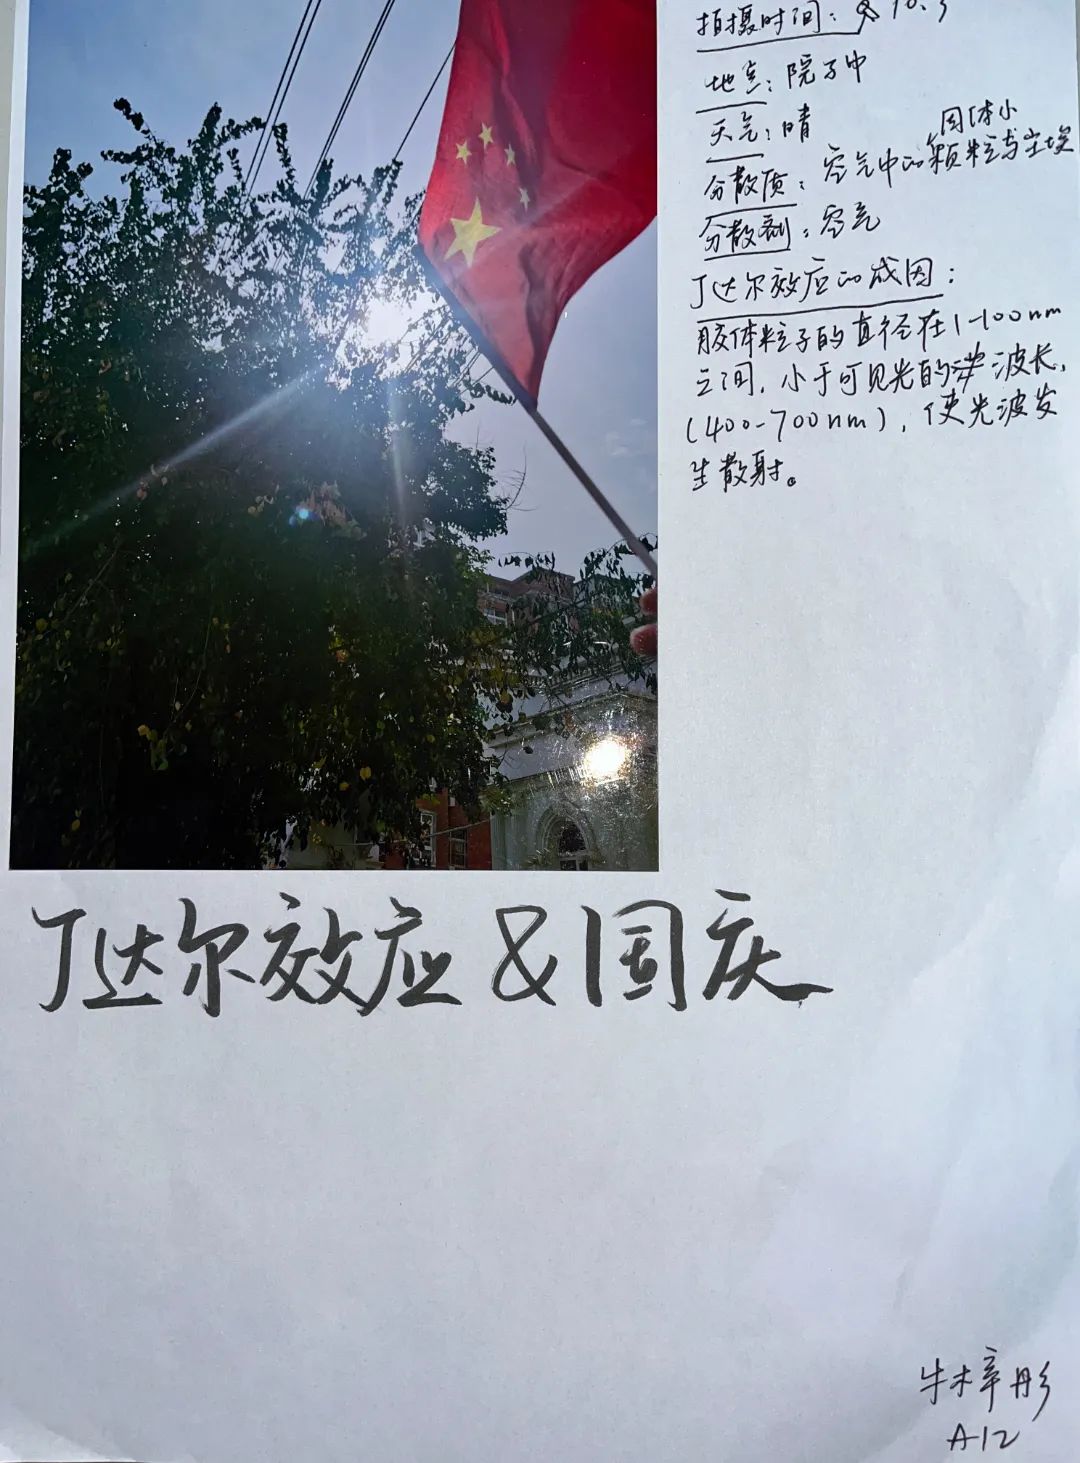 拍摄时间: 10.3
地点: 院子中
天气: 晴
分散质: 空气中的固体小颗粒与尘埃
分散剂: 空气
丁达尔效应的成因:
胶体粒子的直径在1-100nm
之间, 小于可见光的波长,
(400-700nm), 使光波发
生散射。
丁达尔效应 & 国庆
牛梓彤
A12